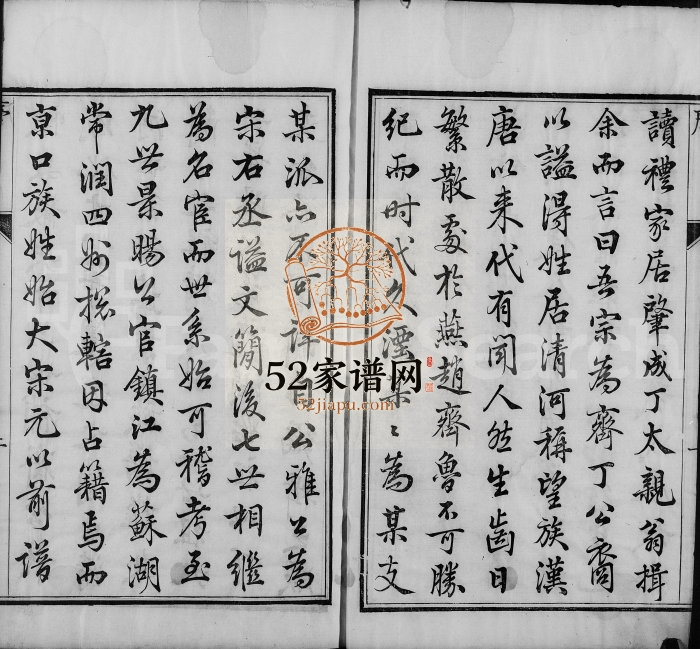 讀禮家居肇成丁太親翁揖
余而言曰吾宗為齊丁公裔
以謚得姓居清河稱望族漢
唐以来代有聞人然生齒日
繁散處於燕趙齊魯不可勝
紀而时代久湮某〻為某支
某派亦不可詳
公雅公為
宋右丞謚文簡後七世相繼
為名宦而世系始可稽考至
九世景暘公官鎮江為蘇湖
常潤四州總轄因占籍焉而
京口族姓始大宋元以前譜
序
52家谱网
52jiapu.com